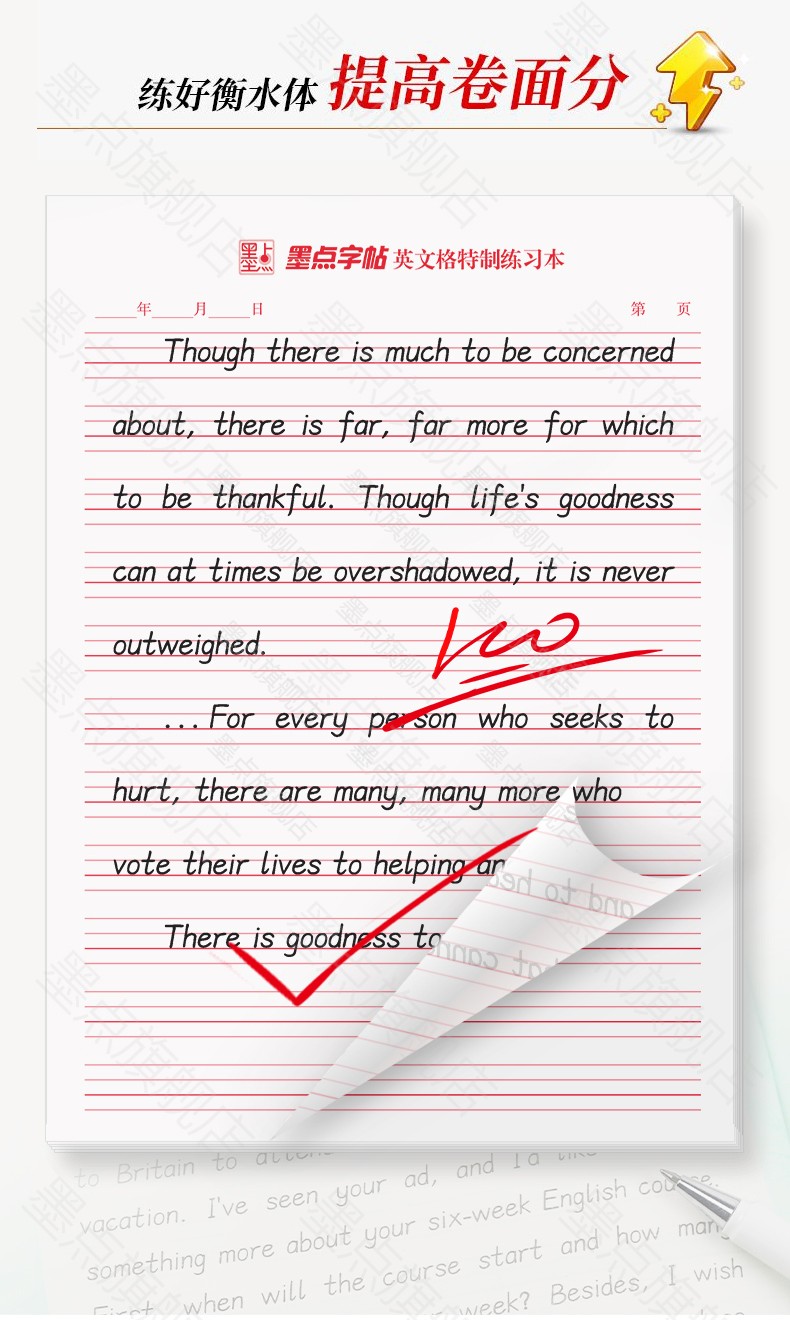 练好衡水体 提高卷面分
墨点 墨点字帖 英文格特制练习本
年 月 日 第 页
Though there is much to be concerned
about, there is far, far more for which
to be thankful. Though life's goodness
can at times be overshadowed, it is never
outweighed.
100
...For every person who seeks to
hurt, there are many, many more who
vote their lives to helping an
and to hea
There is goodness to
at cann
to Britain to atten
ad, and I'd lik
vacation. I've seen your
something more about your six-week English course.
First, when will the course start and how many
week? Besides, I wish
墨点旗舰店